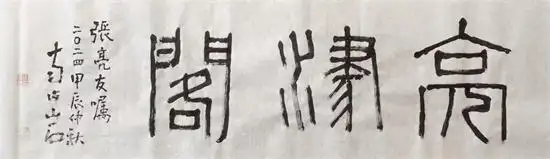 亮津閣
張亮友囑
二〇二四甲辰仲秋